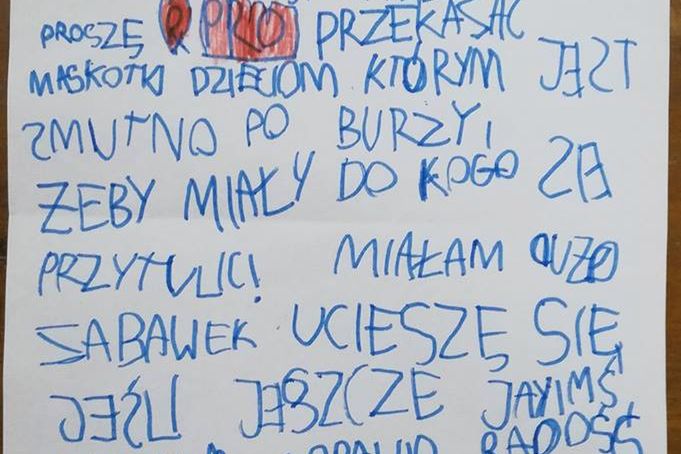 PROSZĘ PRZEKASAĆ
MASKOTKI DZIECIOM KTÓRYM JEST
SMUTNO PO BURZY,
ŻEBY MIAŁY DO KOGO
PRZYTULIĆ! MIAŁAM
SABAWEK UCIESZĘ SIĘ
JEŚLI JESZCZE
RADOŚĆ